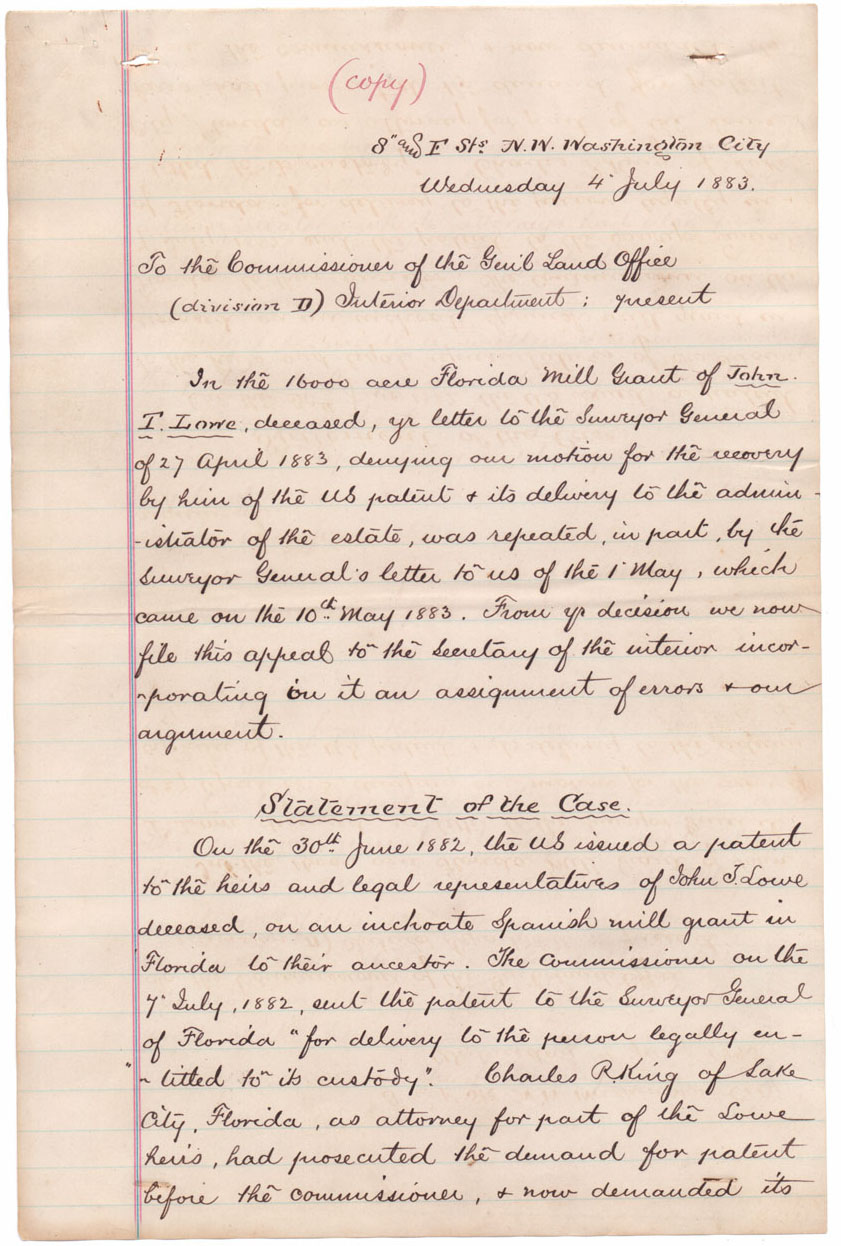 (copy)
8" and F Sts. N.W. Washington City
Wednesday 4' July 1883.
To the Commissioner of the Genl Land Office
(division D) Interior Department; present
In the 16000 acre Florida Mill Grant of John.
T. Lowe, deceased, yr letter to the Surveyor General
of 27 April 1883, denying our motion for the recovery
by him of the US patent & its delivery to the admin-
-istrator of the estate, was repeated, in part, by the
Surveyor General's letter to us of the 1' May, which
came on the 10th. May 1883. From yr decision we now
file this appeal to the Secretary of the interior incor-
-porating in it an assignment of errors & our
argument.
Statement of the Case.
On the 30th. June 1882, the US issued a patent
to the heirs and legal representatives of John T. Lowe
deceased, on an inchoate Spanish mill grant in
Florida to their ancestor. The Commissioner on the
7' July, 1882, sent the patent to the Surveyor General
of Florida "for delivery to the person legally en-
"-titled to its custody". Charles R. King of Lake
City, Florida, as attorney for part of the Lowe
heirs, had prosecuted the demand for patent
before the commissioner, & now demanded its